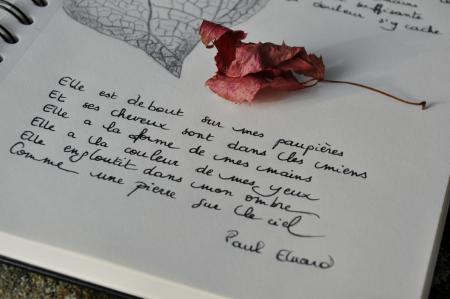 suffisante
douleur s'y cache
Elle est debout sur mes paupières
Et ses cheveux sont dans les miens
Elle a la forme de mes mains
Elle a la couleur de mes yeux
Elle engloutit dans mon ombre
Comme une pierre sur le ciel
Paul Eluard